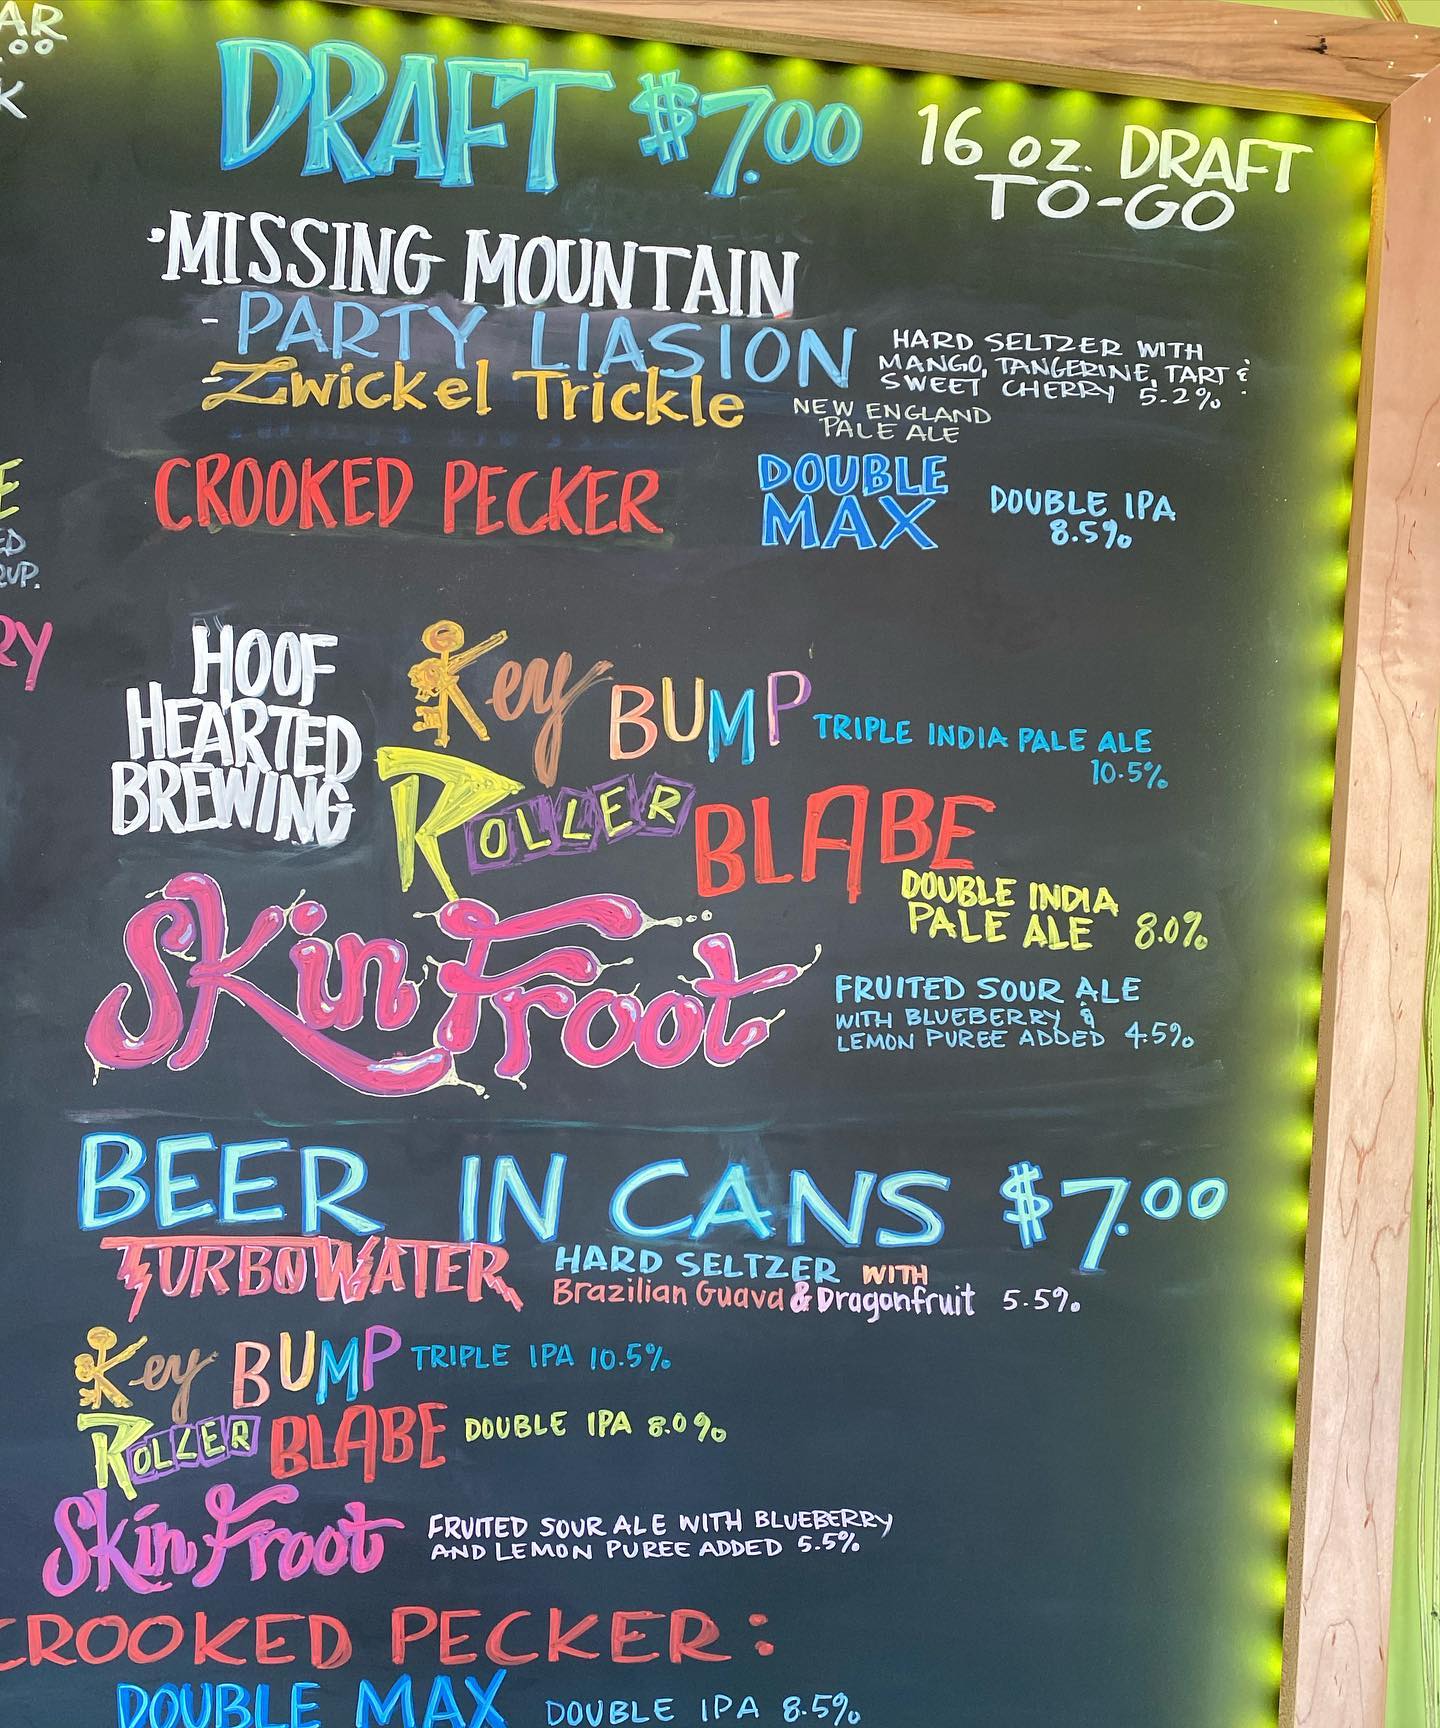 AR
.00
K
DRAFT $7.00
16 oz. DRAFT
TO-GO
·MISSING MOUNTAIN
-PARTY LIASION
HARD SELTZER WITH
MANGO, TANGERINE, TART &
SWEET CHERRY 5.2%
-Zwickel Trickle
NEW ENGLAND
PALE ALE
CROOKED PECKER
DOUBLE
MAX
DOUBLE IPA
8.5%
E
ED
RUP.
RY
HOOF
HEARTED
BREWING
Key BUMP
TRIPLE INDIA PALE ALE
10.5%
ROLLER BLABE
DOUBLE INDIA
PALE ALE 8.0%
Skin Froot
FRUITED SOUR ALE
WITH BLUEBERRY &
LEMON PUREE ADDED 4.5%
BEER IN CANS $7.00
TURBOWATER
HARD SELTZER WITH
Brazilian Guava & Dragonfruit 5.5%
Key BUMP TRIPLE IPA 10.5%
ROLLER BLABE DOUBLE IPA 8.0%
Skin Froot
FRUITED SOUR ALE WITH BLUEBERRY
AND LEMON PUREE ADDED 5.5%
CROOKED PECKER:
DOUBLE MAX DOUBLE IPA 8.5%